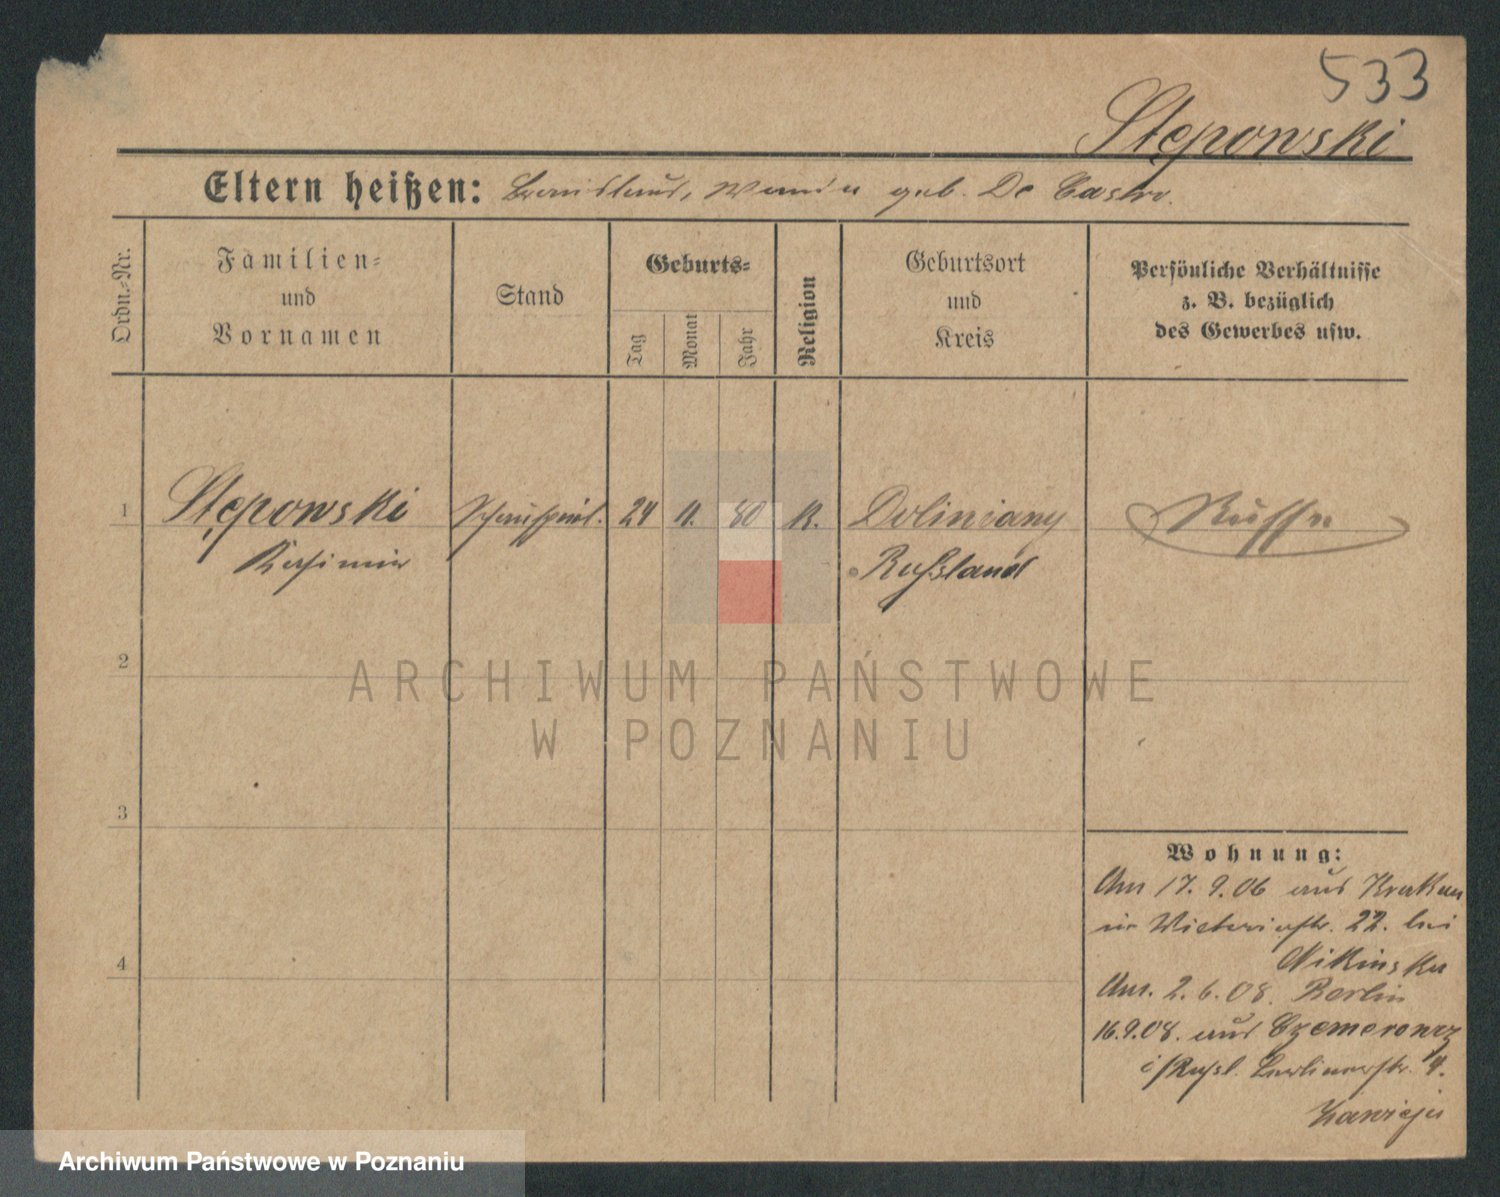 533
Stępowski
Eltern heißen: Bronislaus, Wanda geb. De Castro.
Ordn.-Nr.
Familien-
und
Vornamen
Stand
Geburts-
Tag
Monat
Jahr
Religion
Geburtsort
und
Kreis
Persönliche Verhältnisse
z. B. bezüglich
des Gewerbes usw.
1 Stępowski Schauspiel. 24 11. 80 K. Doliniany Russe
Kasimir Russland
2
3
4
Wohnung:
Am 17. 9. 06 aus Krakau
in Victoriastr. 22. bei
Am. 2. 6. 08. Berlin
16.9.08. aus
i/Russl. Berlinerstr. 4.
ARCHIWUM PAŃSTWOWE
W POZNANIU
Archiwum Państwowe w Poznaniu